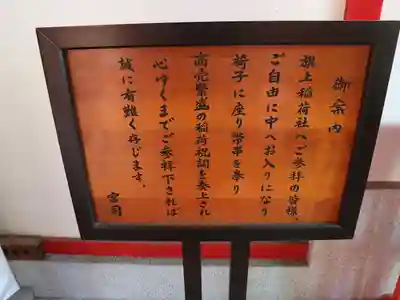 御案内
旗上稲荷社へご参拝の皆様、
ご自由に中へお入りになり
椅子に座り幣串を奉り
商売繁盛の稲荷祝詞を奏上され
心ゆくまでご参拝下されば
誠に有難く存じます。
宮司